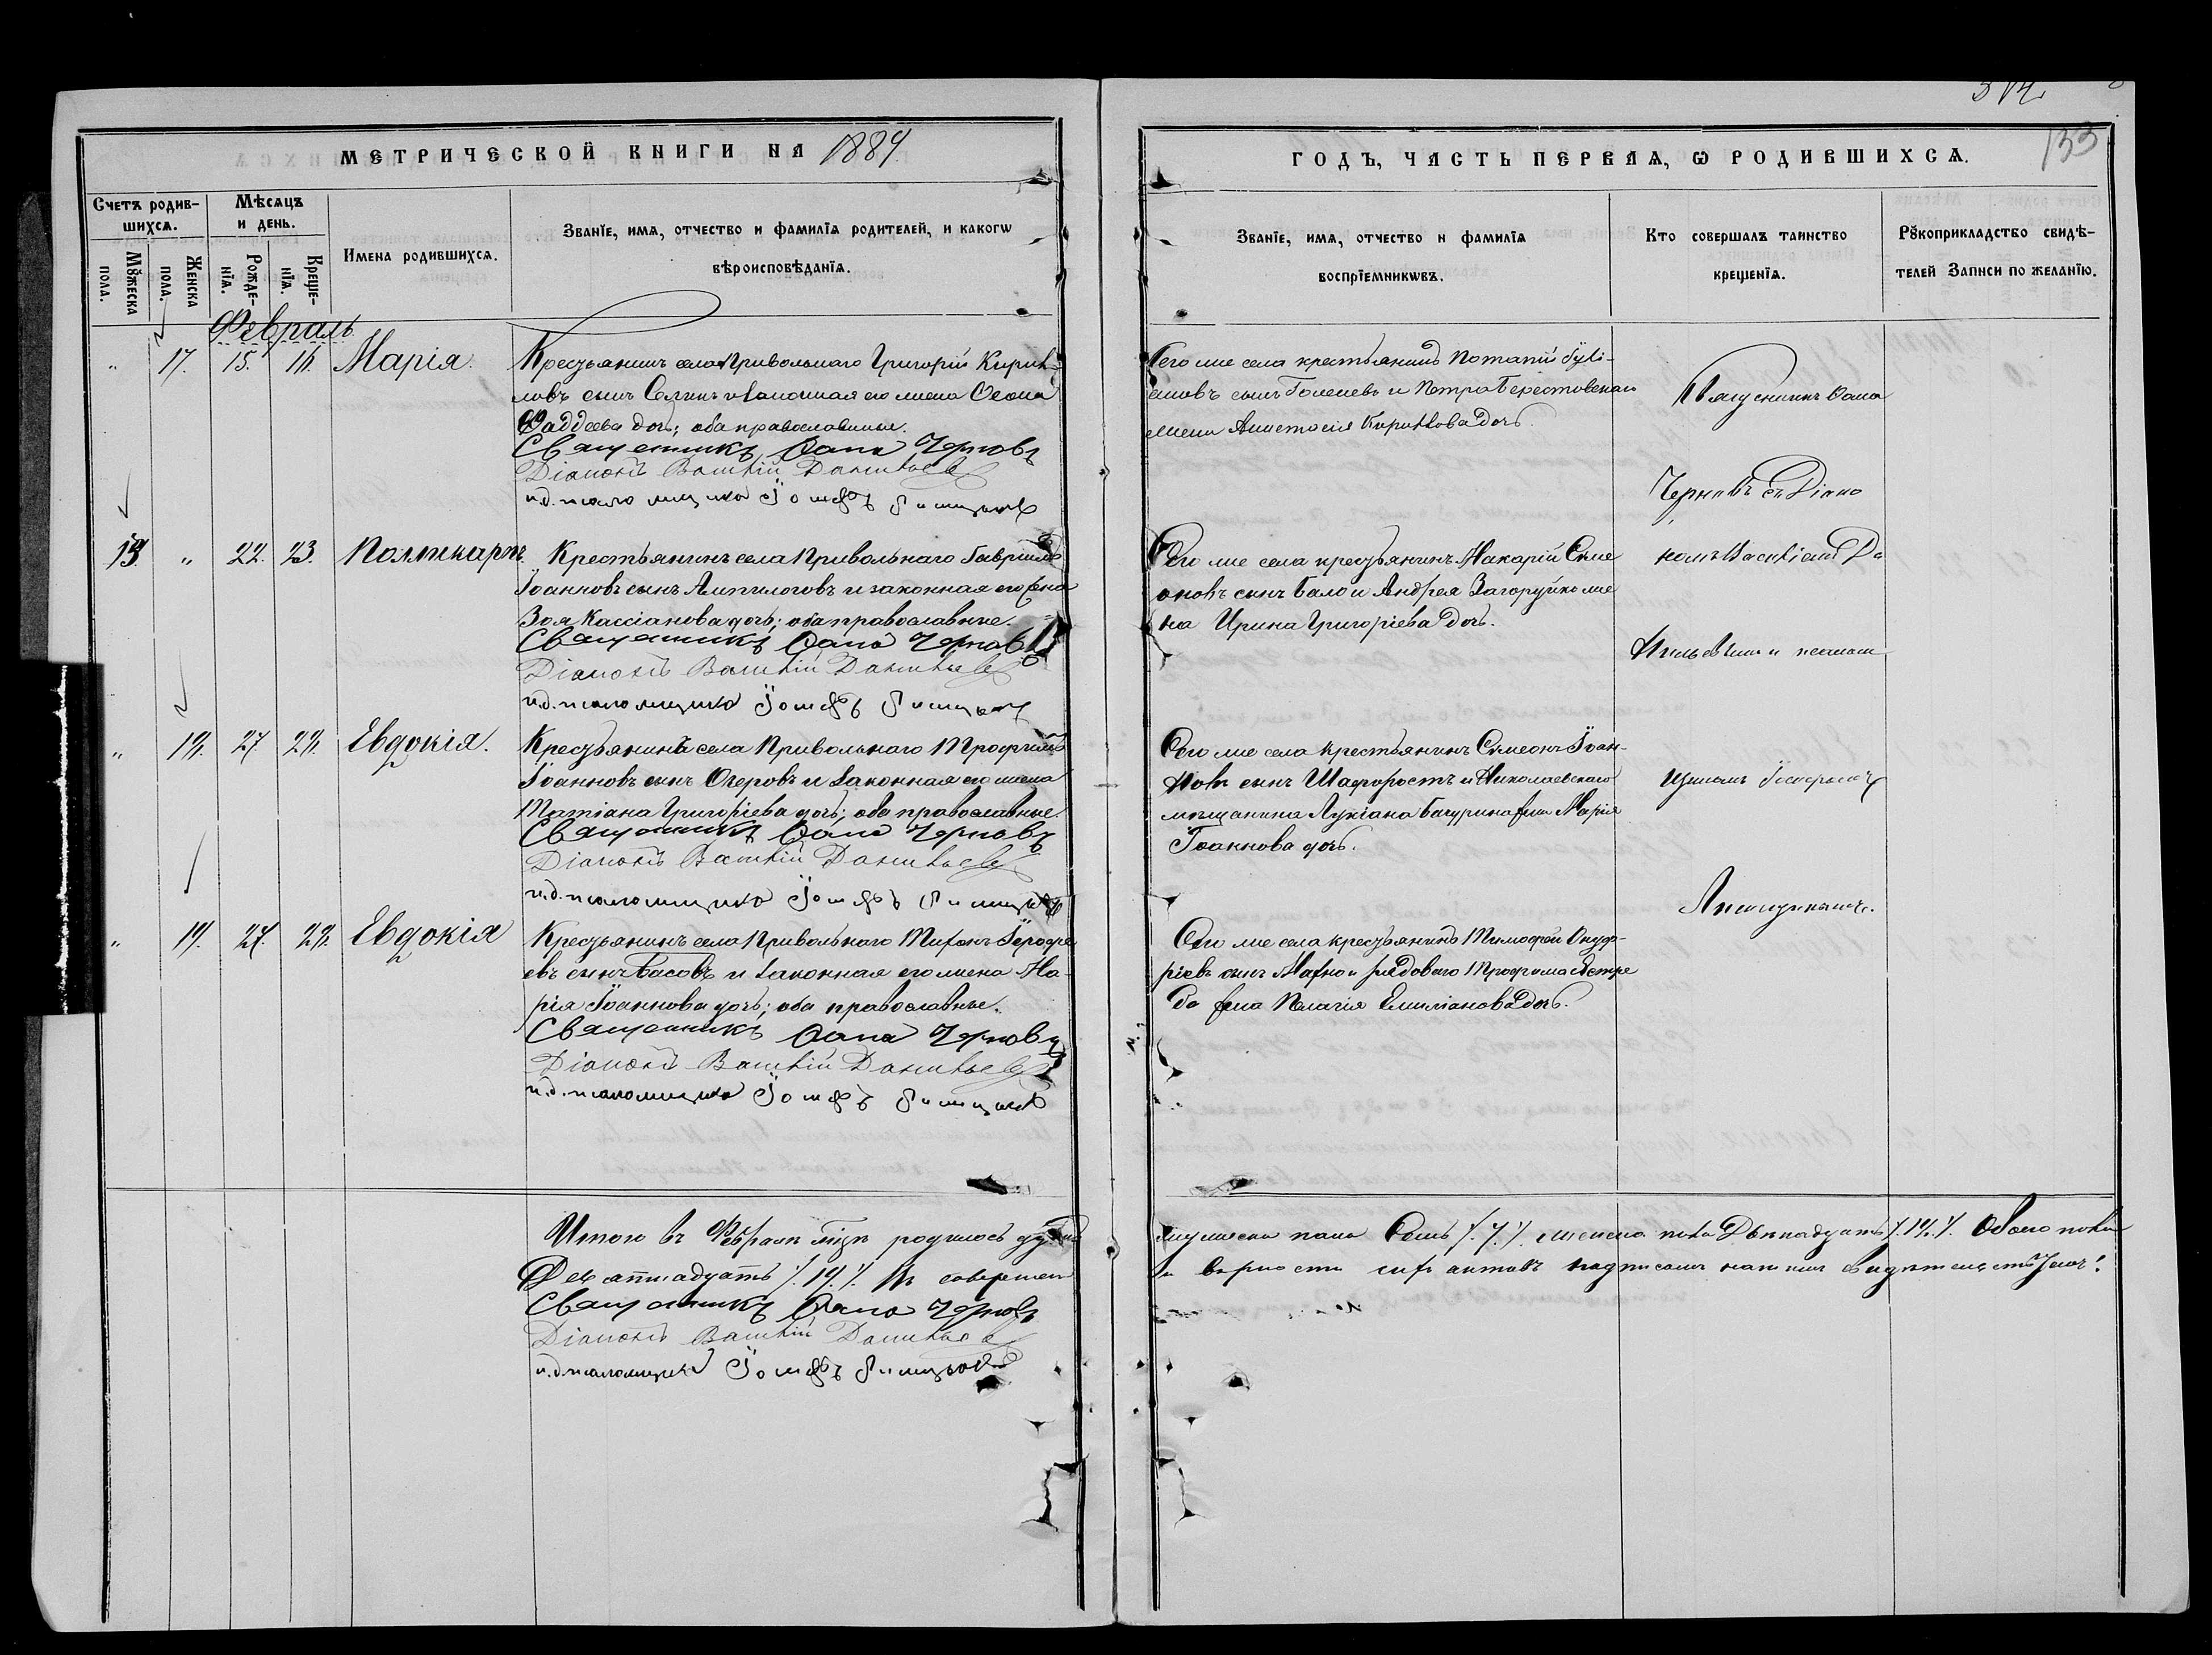 133
МЕТРИЧЕСКОЙ КНИГИ НА 1884
ГОДЪ, ЧАСТЬ ПЕРВАЯ, Ѡ РОДИВШИХСѦ.
Счетъ родив-
шихсѧ.
Мꙋжеска
пола.
Женска
пола.
Мѣсѧцъ
и день.
Рожде-
нїѧ.
Креще-
нїѧ.
Имена родившихсѧ.
Званїе, имѧ, отчество и фамилїѧ родителей, и какогѡ
вѣроисповѣданїѧ.
Званїе, имѧ, отчество и фамилїѧ
воспрїемникѡвъ.
Кто совершалъ таинство
крещенїѧ.
Рꙋкоприкладство свидѣ-
телей записи по желанїю.
Февраль
" 17. 15. 16. Марія.
Крестьянинъ села Привольнаго Григорій Кирил-
ловъ сынъ и законная его жена
Фаддеева дочь; оба православные.
Священникъ Ѳома Черновъ
Діаконъ Василій Данильевъ
и.д. псаломщика Іосифъ
Сего же села крестьянинъ Потапій
сынъ и Петра Берестовскаго
жена Анастасія Кириллова дочь.
Священникъ Ѳома
Черновъ съ Діако
номъ Василіемъ Да
нильевымъ и псалом
щикомъ Іосифомъ
" 22. 23. Поликарпъ.
Крестьянинъ села Привольнаго Гавріилъ
Іоанновъ сынъ Ампилоговъ и законная его жена
Зоя Кассіанова дочь; оба православные.
Священникъ Ѳома Черновъ
Діаконъ Василій Данильевъ
и.д. псаломщика Іосифъ
Сего же села крестьянинъ Макарій Симе
оновъ сынъ Бало и Андрея Загоруйко же
на Ирина Григоріева дочь.
" 27. Евдокія.
Крестьянинъ села Привольнаго Трофимъ
Іоанновъ сынъ Очеровъ и законная его жена
Татіана Григоріева дочь; оба православные.
Священникъ Ѳома Черновъ
Діаконъ Василій Данильевъ
и.д. псаломщика Іосифъ
Сего же села крестьянинъ Симеонъ Іоан-
новъ сынъ Шафоростъ и Николаевскаго
мѣщанина Лукіана Бачурина жена Марія
Іоаннова дочь.
" 27. Евдокія
Крестьянинъ села Привольнаго Тихонъ Іероѳе
евъ сынъ Басовъ и законная его жена Ма-
рія Іоаннова дочь; оба православные.
Священникъ Ѳома Черновъ
Діаконъ Василій Данильевъ
и.д. псаломщика Іосифъ
Сего же села крестьянинъ Тимоѳей Онуф-
ріевъ сынъ Махно и рядоваго Трофима
жена Пелагія Емиліанова дочь.
Итого въ Февралѣ мцѣ родилось мужеска пола Семь /. 7 ./ женска пола Двѣнадцать /. 12 ./ Обоего пола
Девятнадцать /. 19 ./ вѣрности сихъ актовъ подписомъ нашимъ свидѣтельствуемъ:
Священникъ Ѳома Черновъ
Діаконъ Василій Данильевъ
и.д. псаломщика Іосифъ